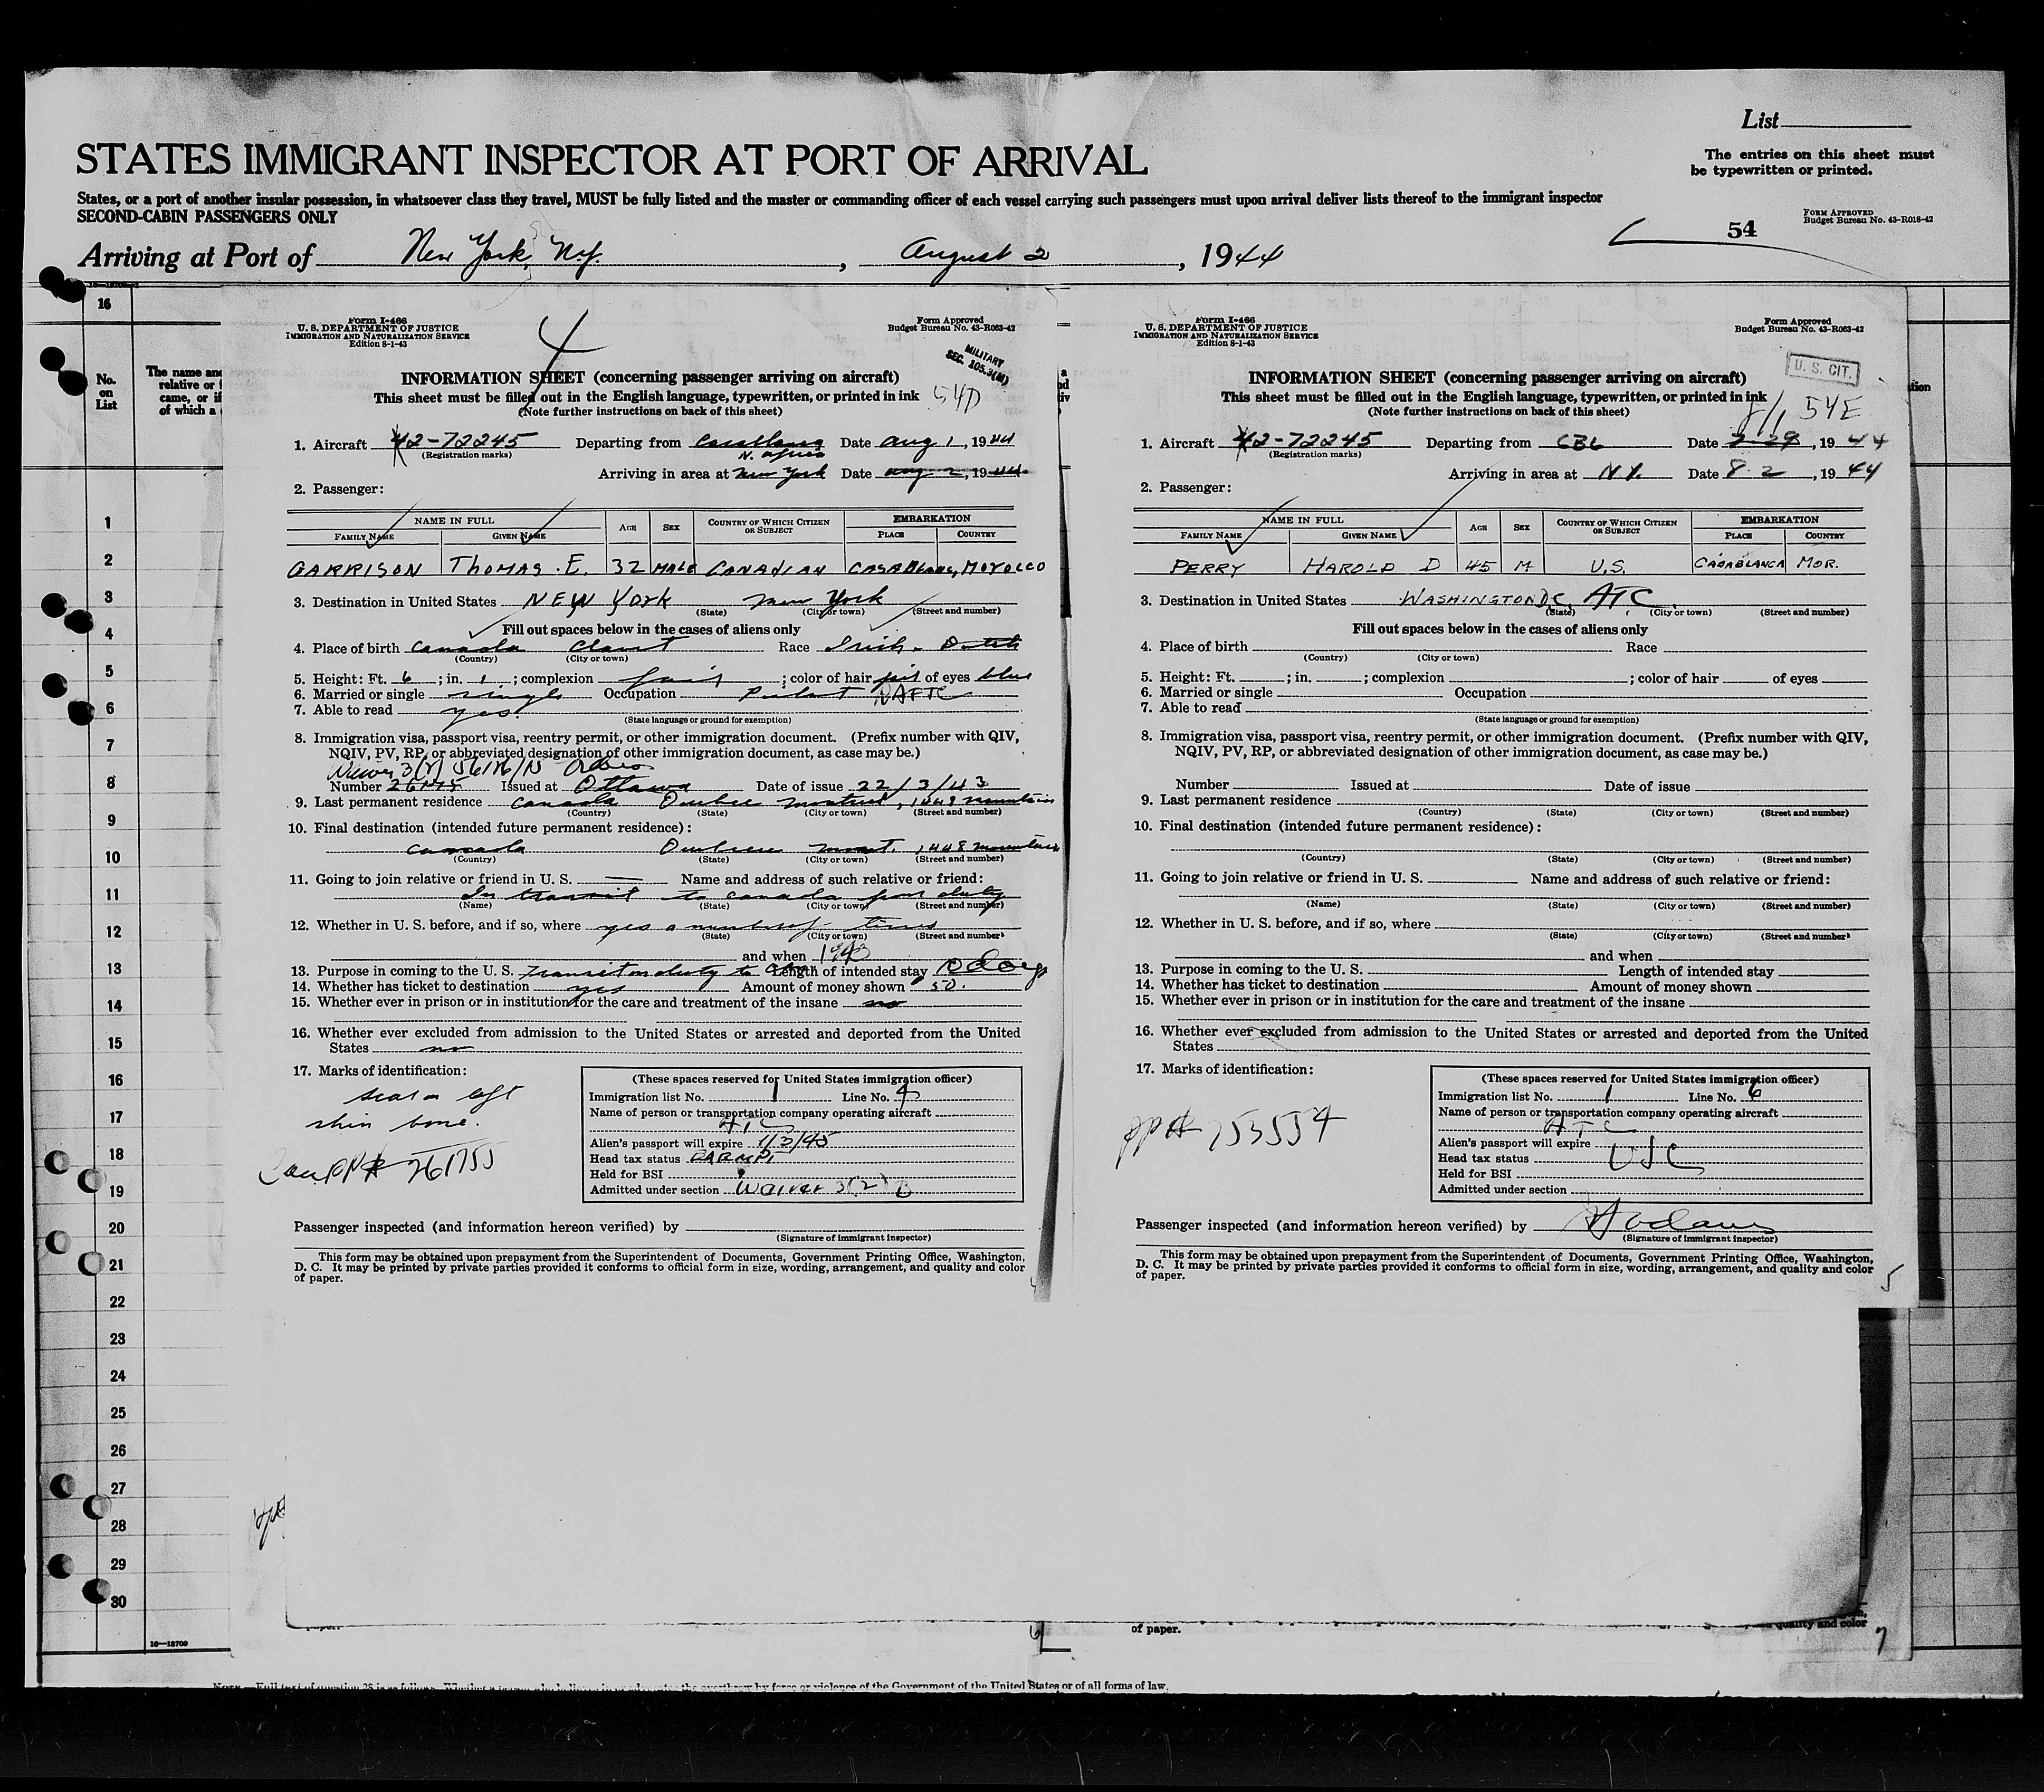 List
STATES IMMIGRANT INSPECTOR AT PORT OF ARRIVAL
The entries on this sheet must
be typewritten or printed.
States, or a port of another insular possession, in whatsoever class they travel, MUST be fully listed and the master or commanding officer of each vessel carrying such passengers must upon arrival deliver lists thereof to the immigrant inspector
SECOND-CABIN PASSENGERS ONLY
54
FORM APPROVED
Budget Bureau No. 43-R018-42
Arriving at Port of New York, N.Y., August 2, 1944
16
No.
on
List
The name and
relative or
came, or if
of which a
1
2
3
4
5
6
7
8
9
10
11
12
13
14
15
16
17
18
19
20
21
22
23
24
25
26
27
28
29
30
16—18709
Form I-466
U. S. DEPARTMENT OF JUSTICE
IMMIGRATION AND NATURALIZATION SERVICE
Edition 8-1-43
4
Form Approved
Budget Bureau No. 43-R063-42
MILITARY
SEC. 105.3(M)
54D
INFORMATION SHEET (concerning passenger arriving on aircraft)
This sheet must be filled out in the English language, typewritten, or printed in ink
(Note further instructions on back of this sheet)
1. Aircraft 42-72245 Departing from Casablanca Date Aug 1, 1944
(Registration marks) N. Africa
Arriving in area at New York Date Aug 2, 1944
2. Passenger:
NAME IN FULL AGE SEX COUNTRY OF WHICH CITIZEN OR SUBJECT EMBARKATION
FAMILY NAME GIVEN NAME PLACE COUNTRY
GARRISON THOMAS. E. 32 MALE CANADIAN CASABLANCA, MOROCCO
3. Destination in United States NEW York New York
(State) (City or town) (Street and number)
Fill out spaces below in the cases of aliens only
4. Place of birth Canada Race Irish - Dutch
(Country) (City or town)
5. Height: Ft. 6; in. 1; complexion fair; color of hair fair of eyes blue
6. Married or single single Occupation RAFTC
7. Able to read yes.
(State language or ground for exemption)
8. Immigration visa, passport visa, reentry permit, or other immigration document. (Prefix number with QIV,
NQIV, PV, RP, or abbreviated designation of other immigration document, as case may be.)
Number Issued at Ottawa Date of issue 22/3/43
9. Last permanent residence Canada Quebec Montreal, 1448 Mountain
(Country) (State) (City or town) (Street and number)
10. Final destination (intended future permanent residence):
Canada Quebec Mont. 1448 Mountain
(Country) (State) (City or town) (Street and number)
11. Going to join relative or friend in U. S. — Name and address of such relative or friend:
In transit to Canada for duty
(Name) (State) (City or town) (Street and number)
12. Whether in U. S. before, and if so, where yes a number of times
(State) (City or town) (Street and number)
and when 1943
13. Purpose in coming to the U. S. Transit on duty to Length of intended stay
14. Whether has ticket to destination yes Amount of money shown 50.
15. Whether ever in prison or in institution for the care and treatment of the insane no
16. Whether ever excluded from admission to the United States or arrested and deported from the United
States no
17. Marks of identification:
scar on left
shin bone.
(These spaces reserved for United States immigration officer)
Immigration list No. 1 Line No. 4
Name of person or transportation company operating aircraft
ATC
Alien's passport will expire
Head tax status
Held for BSI
Admitted under section Waiver 3(2) B
Passenger inspected (and information hereon verified) by
(Signature of immigrant inspector)
This form may be obtained upon prepayment from the Superintendent of Documents, Government Printing Office, Washington,
D. C. It may be printed by private parties provided it conforms to official form in size, wording, arrangement, and quality and color
of paper.
Form I-466
U. S. DEPARTMENT OF JUSTICE
IMMIGRATION AND NATURALIZATION SERVICE
Edition 8-1-43
Form Approved
Budget Bureau No. 43-R063-42
U. S. CIT.
INFORMATION SHEET (concerning passenger arriving on aircraft)
This sheet must be filled out in the English language, typewritten, or printed in ink
(Note further instructions on back of this sheet)
8/1 54E
1. Aircraft 42-72245 Departing from CBL Date 7-29, 1944
(Registration marks)
Arriving in area at N.Y. Date 8-2, 1944
2. Passenger:
NAME IN FULL AGE SEX COUNTRY OF WHICH CITIZEN OR SUBJECT EMBARKATION
FAMILY NAME GIVEN NAME PLACE COUNTRY
PERRY HAROLD D 45 M U.S. CASABLANCA MOR.
3. Destination in United States WASHINGTON D.C. ATC
(State) (City or town) (Street and number)
Fill out spaces below in the cases of aliens only
4. Place of birth Race
(Country) (City or town)
5. Height: Ft. ; in. ; complexion ; color of hair of eyes
6. Married or single Occupation
7. Able to read
(State language or ground for exemption)
8. Immigration visa, passport visa, reentry permit, or other immigration document. (Prefix number with QIV,
NQIV, PV, RP, or abbreviated designation of other immigration document, as case may be.)
Number Issued at Date of issue
9. Last permanent residence
(Country) (State) (City or town) (Street and number)
10. Final destination (intended future permanent residence):
(Country) (State) (City or town) (Street and number)
11. Going to join relative or friend in U. S. Name and address of such relative or friend:
(Name) (State) (City or town) (Street and number)
12. Whether in U. S. before, and if so, where
(State) (City or town) (Street and number)
and when
13. Purpose in coming to the U. S. Length of intended stay
14. Whether has ticket to destination Amount of money shown
15. Whether ever in prison or in institution for the care and treatment of the insane
16. Whether ever excluded from admission to the United States or arrested and deported from the United
States
17. Marks of identification:
(These spaces reserved for United States immigration officer)
Immigration list No. 1 Line No. 6
Name of person or transportation company operating aircraft
ATC
Alien's passport will expire
Head tax status USC
Held for BSI
Admitted under section
Passenger inspected (and information hereon verified) by
(Signature of immigrant inspector)
This form may be obtained upon prepayment from the Superintendent of Documents, Government Printing Office, Washington,
D. C. It may be printed by private parties provided it conforms to official form in size, wording, arrangement, and quality and color
of paper.
5
of paper.
quality and color
6
7
by force or violence of the Government of the United States or of all forms of law.